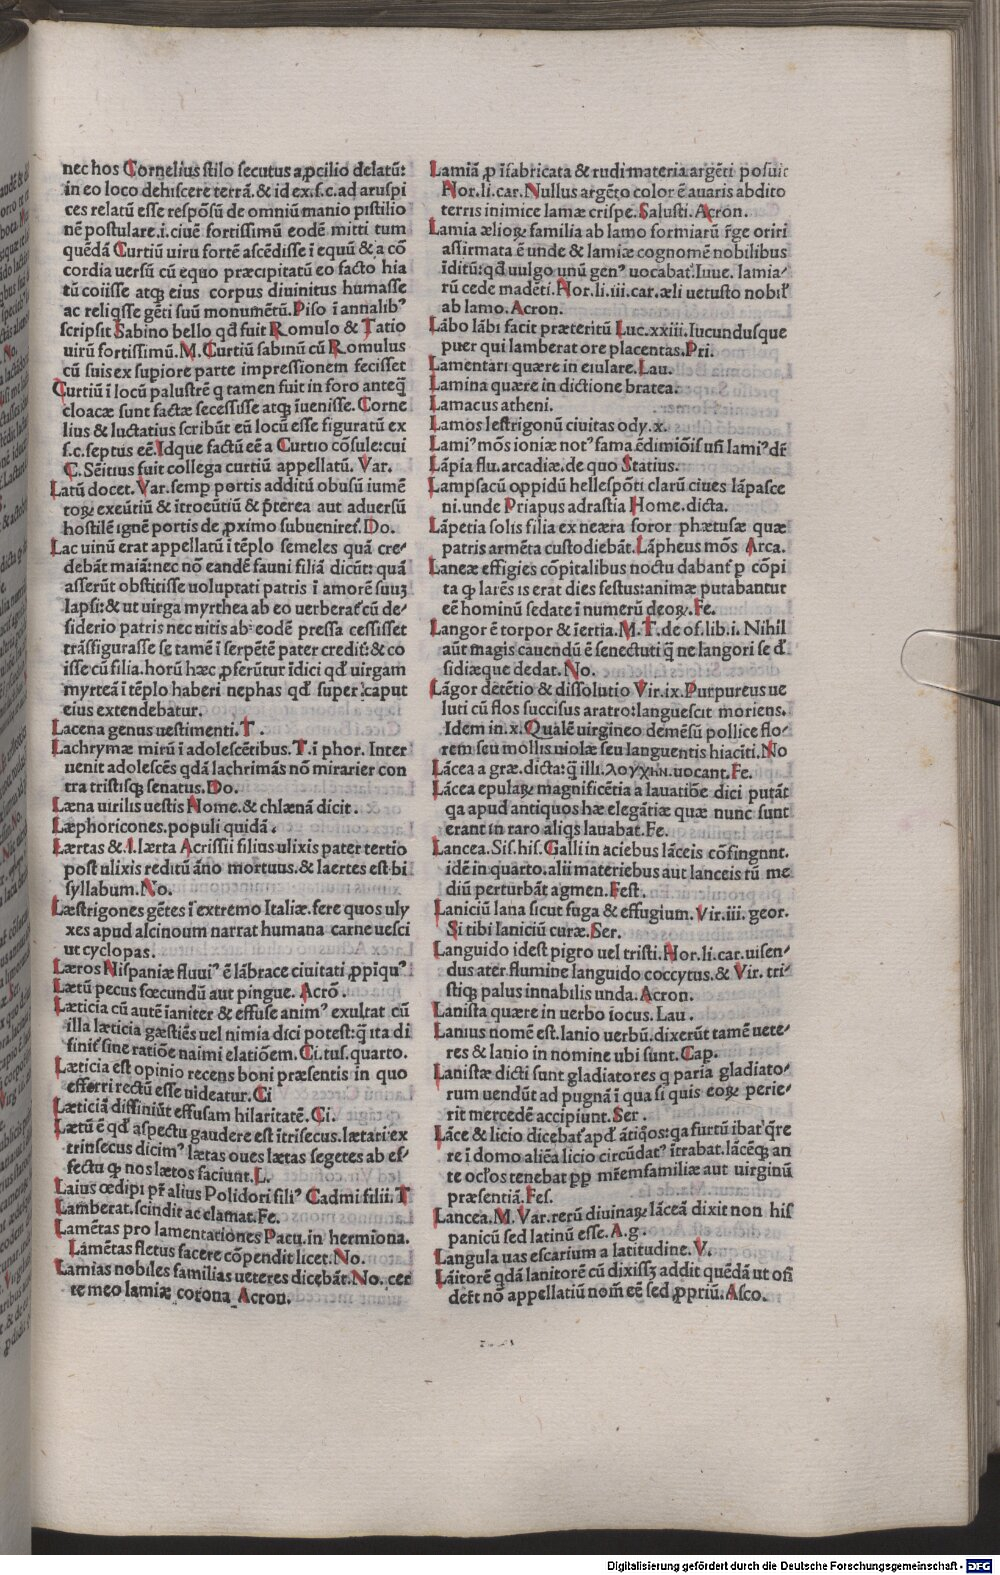 nec hos Cornelius stilo secutus a ꝓcilio delatū:
in eo loco dehiscere terrā. & id ex.s.c.ad aruspi
ces relatū esse respōsū de omniū manio pistilio
nē postulare.i.ciuē fortissimū eodē mitti tum
quēdā Curtiū uirū fortē ascēdisse ī equū & a cō
cordia uersū cū equo præcipitatū eo facto hia
tū coiisse atqꝫ eius corpus diuinitus humasse
ac reliqsse gēti suū monumētū. Piso ī annalibꝰ
scripsit Sabino bello qd fuit Romulo & Tatio
uirū fortissimū. M. Curtiū sabinū cū Romulus
cū suis ex supiore parte impressionem fecisset
Curtiū ī locū palustrē q tamen fuit in foro anteq̄
cloacæ sunt factæ secessisse atqꝫ īuenisse. Corne
lius & luctatius scribūt eū locū esse figuratū ex
s.c.septus eē. Idque factū eē a Curtio cōsule: cui
C. Sēitus fuit collega curtiū appellatū. Var.
Latū docet. Var. semp portis additū obusū iumē
toꝝ exeūtiū & ītroeūtiū & p̄terea aut aduersū
hostilē ignē portis de ꝓximo subueniret. Do.
Lac uinū erat appellatū ī tēplo semeles quā cre-
debāt maiā: nec nō eandē fauni filiā dicūt: quā
asserūt obstitisse uoluptati patris ī amorē suuꝫ
lapsi: & ut uirga myrthea ab eo uerberat̄ cū de-
siderio patris nec uitis ab eodē pressa cessisset
trāsfigurasse se tamē ī serpētē pater credit̄: & co
isse cū filia. horū hæc ꝓserūtur īdici qd uirgam
myrteā ī tēplo haberi nephas qd super caput
eius extendebatur.
Lacena genus uestimenti. T .
Lachrymæ mirū ī adolescētibus. T. ī phor. Inter
uenit adolescēs qdā lachrimās nō mirarier con
tra tristisqꝫ senatus. Do.
Læna uirilis uestis Nome. & chlænā dicit.
Læphoricones. populi quidā.
Laertas & .l. laerta Acrissii filius ulixis pater tertio
post ulixis reditū āno mortuus. & laertes est bi
syllabum. No.
Læstrigones gētes ī extremo Italiæ. fere quos uly
xes apud alcinoum narrat humana carne uesci
ut cyclopas.
Læros Nispaniæ fluuiꝰ ē lābrace ciuitati ꝓpiquꝰ
Lætū pecus fœcundū aut pingue. Acrō.
Læticia cū autē ianiter & effuse animꝰ exultat cū
illa læticia gæstiēs uel nimia dici potest: q̄ ita di
finit̄ sine ratiōe naimi elatiōem. Ci. tus. quarto.
Læticia est opinio recens boni præsentis in quo
efferri rectū esse uideatur. Ci
Læticiā diffiniūt effusam hilaritatē. Ci.
Lætū ē qd aspectu gaudere est ītrīsecus. lætari ex
trinsecus dicimꝰ lætas oues lætas segetes ab ef-
fectu ꝙ nos lætos faciunt. L.
Laius œdipi pr̄ alius Polidori filiꝰ Cadmi filii. T
Lamberat. scindit ac clamat. Fe.
Lamētas pro lamentationes Pacu. in hermiona.
Lāmētas fletus facere cōpendit licet. No.
Lamias nobiles familias ueteres dicebāt. No. cer
te meo lamiæ corona Acron.
Lamiā ꝓ īfabricata & rudi materia argēti posuit
Nor. li. car. Nullus argēto color ē auaris abdito
terris inimice lamæ crispe. Salusti. Acron.
Lamia ælioꝝ familia ab lamo formiarū r̄ge oriri
assirmata ē unde & lamiæ cognomē nobilibus
īditū: qd uulgo unū genꝰ uocabat̄. Iuue. lamia-
rū cede madēti. Nor. li. iii. car. æli uetusto nobil̄
ab lamo. Acron.
Lābo lābi facit præteritū Luc. xxiii. Iucundusque
puer qui lamberat ore placentas. Pri.
Lamentari quære in eiulare. Lau.
Lamina quære in dictione bratea.
Lamacus atheni.
Lamos lestrigonū ciuitas ody. x.
Lamiꝰ mōs ioniæ notꝰ fama ēdimiōis usī lamiꝰ dr̄
Lāpia flu. arcadiæ. de quo Statius.
Lampsacū oppidū hellespōti clarū ciues lāpasce
ni. unde Priapus adrastia Home. dicta.
Lāpetia solis filia ex neæra soror phætusæ quæ
patris armēta custodiebāt. Lāpheus mōs Arca.
Laneæ effigies cōpitalibus noctu dabant̄ ꝑ cōpi
ta ꝙ larēs is erat dies festus: animæ putabantur
eē hominū sedate ī numerū deoꝝ. Fe.
Langor ē torpor & īertia. M. T. de of. lib. i. Nihil
aūt magis cauendū ē senectuti q̄ ne langori se d
sidiæque dedat. No.
Lāgor detētio & dissolutio Vir. ix. Purpureus ue
luti cū flos succisus aratro: languescit moriens.
Idem in. x. Qualē uirgineo demēsū pollice flo-
rem seu mollis uiolæ seu languentis hiacīti. No
Lācea a græ. dicta: q̄ illi. λογχην. uocant. Fe.
Lācea epulaꝝ magnificētia a lauatiōe dici putāt
qa apud antiquos hæ elegātiæ quæ nunc sunt
erant in raro aliqs lauabat. Fe.
Lancea. Sis. his. Galli in aciebus lāceis cōfingnnt.
idē in quarto. alii materiebus aut lanceis tū me
diū perturbāt agmen. Fest.
Laniciū lana sicut fuga & effugium. Vir. iii. geor.
Si tibi laniciū curæ. Ser.
Languido idest pigro uel tristi. Nor. li. car. uisen-
dus ater flumine languido coccytus. & Vir. tri-
stiqꝫ palus innabilis unda. Acron.
Lanista quære in uerbo iocus. Lau.
Lanius nomē est. lanio uerbū. dixerūt tamē uete-
res & lanio in nomine ubi sunt. Cap.
Lanistæ dicti sunt gladiatores q paria gladiato-
rum uendūt ad pugnā ī qua si quis eoꝝ perie-
rit mercedē accipiunt. Ser.
Lāce & licio dicebat̄ apd āntiqos: qa furtū ibat q̄re
re ī domo aliēa licio circūdatꝰ ītrabat. lācēqꝫ an
te oclos tenebat pp mr̄emfamiliæ aut uirginū
præsentiā. Fes.
Lancea. M. Var. rerū diuinaꝝ lāceā dixit non his
panicū sed latinū esse. A. g.
Langula uas escarium a latitudine. V.
Lāitorē qdā lanitorē cū dixissꝫ addit quēdā ut osī
deret̄ nō appellatiū nom̄ eē sed ꝓpriū. Asco.
Digitalisierung gefördert durch die Deutsche Forschungsgemeinschaft - DFG